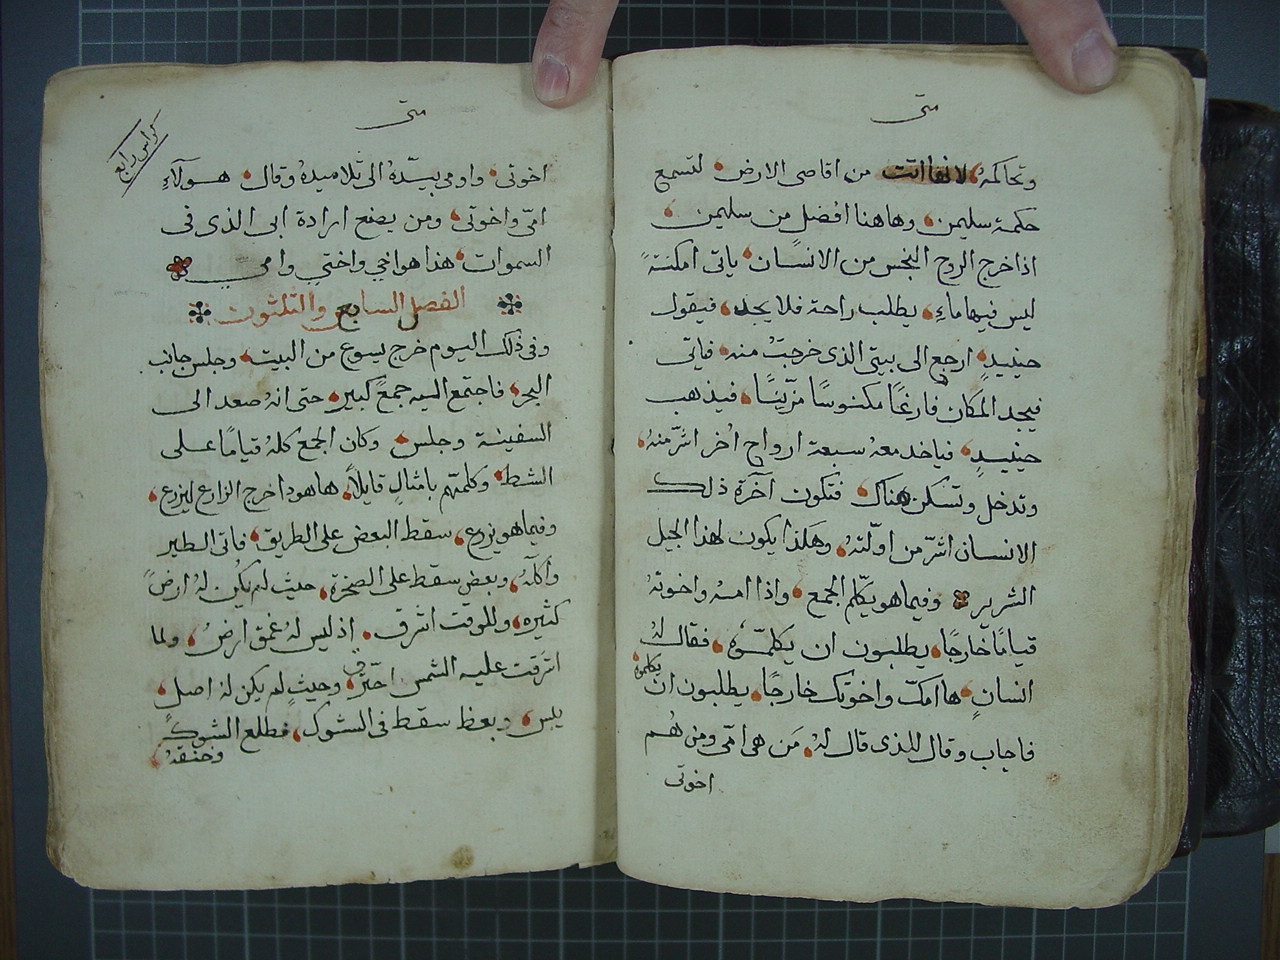 متى
وتحاكمه لانها اتت من اقاصى الارض لتسمع
حكمة سليمن وهاهنا افضل من سليمن
اذا خرج الروح النجس من الانسان ياتى امكنةً
ليس فيها ماء يطلب راحة فلا يجد فيقول
حينيدٍ ارجع الى بيتى الذى خرجتُ منه فياتى
فيجد المكان فارغًا مكنوسًا مزّينًا فيذهب
حينيدٍ فياخد معهُ سبعة ارواح اُخر اشرّ منهُ
وتدخل وتسكن هناك فتكون آخرة ذلك
الانسان اشرّ من اولّتهُ وهكذا يكون لهذا الجيل
الشرير وفيما هو يكلّم الجمع واذا امهُ واخوتهُ
قيامًا خارجًا يطلبون ان يكلمّوهُ فقال لهُ
انسانٍ ها امكّ واخوتك خارجًا يطلبون ان يكلموهُ
فاجاب وقال للذى قال لهُ مَن هى امّى ومن هُم
اخوتى
متى
كراس رابع
اخوتى واومى بيدّهُ الى تلاميدهُ وقال هولآءِ
امّى واخوتى ومن يصنع ارادة ابى الذى فى
السموات هذا هو اخي واختي وامي
الفصل السابع والتلثون
وفى ذلك اليوم خرج يسوع من البيت وجلس جانب
البحر فاجتمع اليه جمعً كبير حتى انهُ صعد الى
السفينة وجلس وكان الجمع كلهُ قيامًا على
الشط وكلمّهم بامثالٍ قايلاً هاهودا خرج الزارع ليزرع
وفيما هو يزرع سقط البعض على الطريق فاتى الطير
واكلهُ وبعض سقط على الصخرة حيث لم يكُن لهُ ارضً
كثيره وللوقت اشرق اذ ليس لهُ عمق ارضُ ولما
اشرقت عليه الشمس احترق وحيثِ لم يكن لهُ اصل
يبس وبعظ سقط فى الشوك فطلع الشوك
وخنقهُ